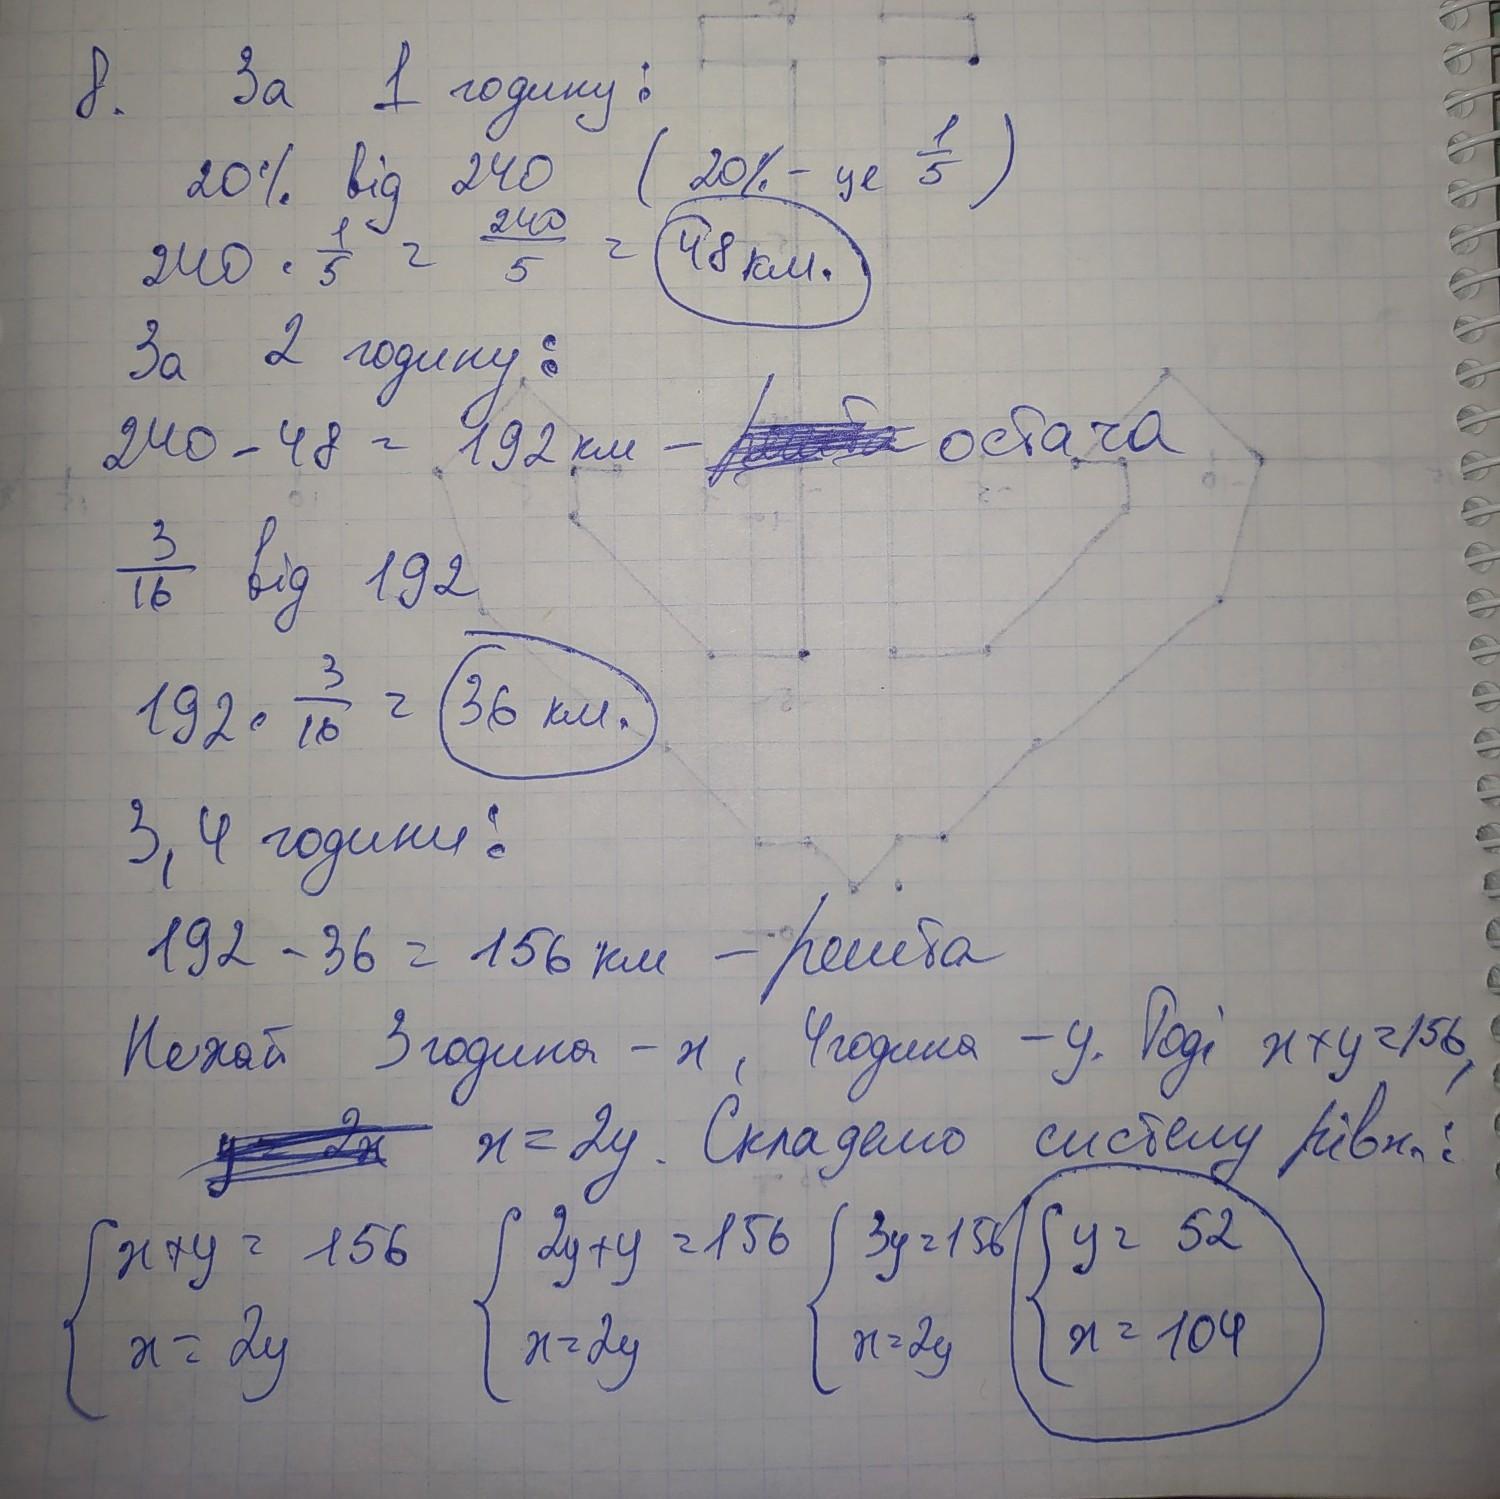 8. За 1 годину:
20% від 240 (20% - це 1/5)
240 · 1/5 = 240/5 = 48 км.
За 2 годину:
240 - 48 = 192 км - остача
3/16 від 192
192 · 3/16 = 36 км.
3, 4 години:
192 - 36 = 156 км - решта
Нехай 3 година - x, 4 година - y. Тоді x+y=156,
x = 2y. Складемо систему рівн.:
{ x+y = 156 { 2y+y = 156 { 3y=156 { y = 52
x = 2y x=2y x=2y x = 104